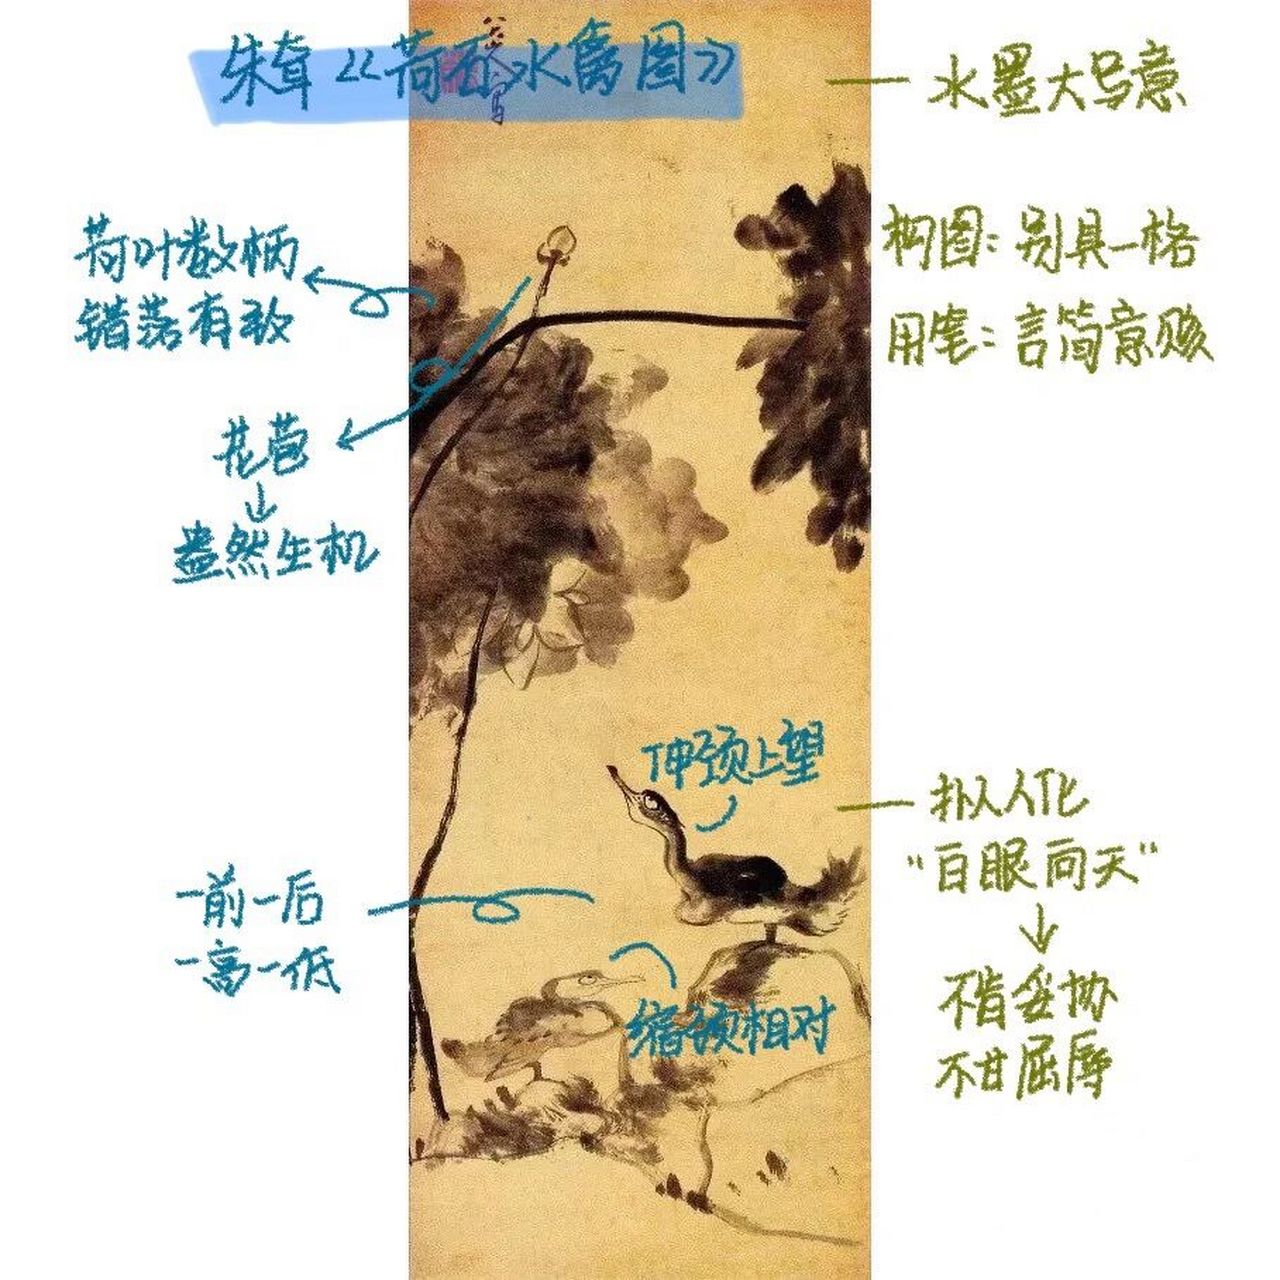 朱耷《荷石水禽图》
八大山人写
水墨大写意
荷叶数柄
错落有致
构图：别具一格
用笔：言简意赅
花苞
盎然生机
伸颈上望
拟人化
“白眼向天”
一前一后
一高一低
缩颈相对
不肯妥协
不甘屈辱